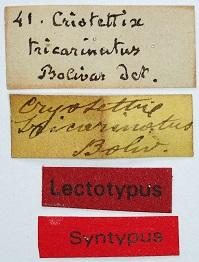 41. Cristettix
tricarinatus
Bolivar Det.
Cryptettix
tricarinatus
Boliv.
Lectotypus
Syntypus